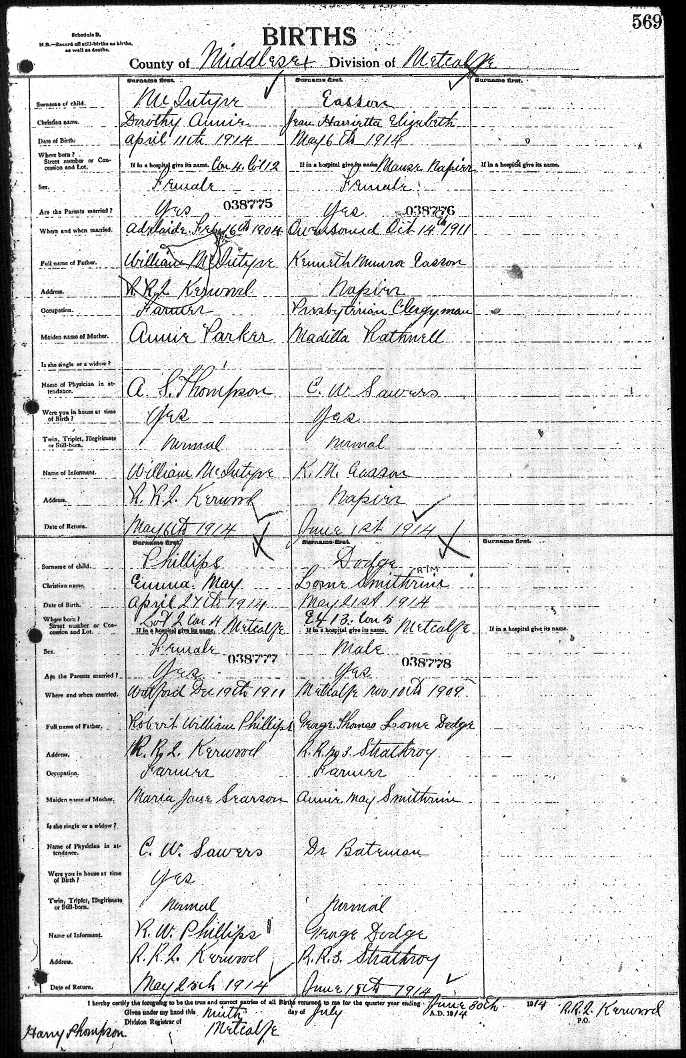 569
Schedule B.
N.B.—Record all still-births as births, as well as deaths.
BIRTHS
County of Middlesex Division of Metcalfe
Surname first. Surname first. Surname first.
Surname of child. McIntyre Easson
Christian name. Dorothy Annie Jean Harrietta Elizabeth
Date of Birth. April 11th 1914 May 6th 1914
Where born?
Street number or Concession and Lot. If in a hospital give its name. Con 4. lot 12 If in a hospital give its name. Manse Napier If in a hospital give its name.
Sex. Female Female
Are the Parents married? Yes 038775 Yes 038776
Where and when married. Adelaide 16th 1904 Owen Sound Oct 14th 1911
Full name of Father. William McIntyre Kenneth Munro Easson
Address. R.R.2 Kerwood Napier
Occupation. Farmer Presbyterian Clergyman
Maiden name of Mother. Annie Parker Madilla Rathwell
Is she single or a widow?
Name of Physician in attendance. A. S. Thompson C. W. Sawers
Were you in house at time of Birth? Yes Yes
Twin, Triplet, Illegitimate or Still-born. Normal Normal
Name of Informant. William McIntyre K. M. Easson
Address. R.R.2. Kerwood Napier
Date of Return. May 6th 1914 June 1st 1914
Surname first. Surname first. Surname first.
Surname of child. Phillips Dodge
Christian name. Emma May Lorne Smithrim RIM
Date of Birth. April 27th 1914 May 21st 1914
Where born?
Street number or Concession and Lot. Lot 2 Con 4 If in a hospital give its name. Metcalfe E½ 13. Con 5 If in a hospital give its name. Metcalfe If in a hospital give its name.
Sex. Female Male
Are the Parents married? Yes 038777 Yes 038778
Where and when married. Watford Dec 19th 1911 Metcalfe Nov 10th 1909
Full name of Father. Robert William Phillips George Thomas Lorne Dodge
Address. R.R.2. Kerwood R.R. No 3. Strathroy
Occupation. Farmer Farmer
Maiden name of Mother. Maria Jane Searson Annie May Smithrim
Is she single or a widow?
Name of Physician in attendance. C. W. Sawers Dr Bateman
Were you in house at time of Birth? Yes
Twin, Triplet, Illegitimate or Still-born. Normal Normal
Name of Informant. R. W. Phillips George Dodge
Address. R.R.2. Kerwood R.R.3. Strathroy
Date of Return. May 1914 June 18th 1914
I hereby certify the foregoing to be the true and correct entries of all Births returned to me for the quarter year ending June 30th 1914 R.R.2. Kerwood
Given under my hand this Ninth day of July A.D. 1914 P.O.
Harry Thompson Division Registrar of Metcalfe